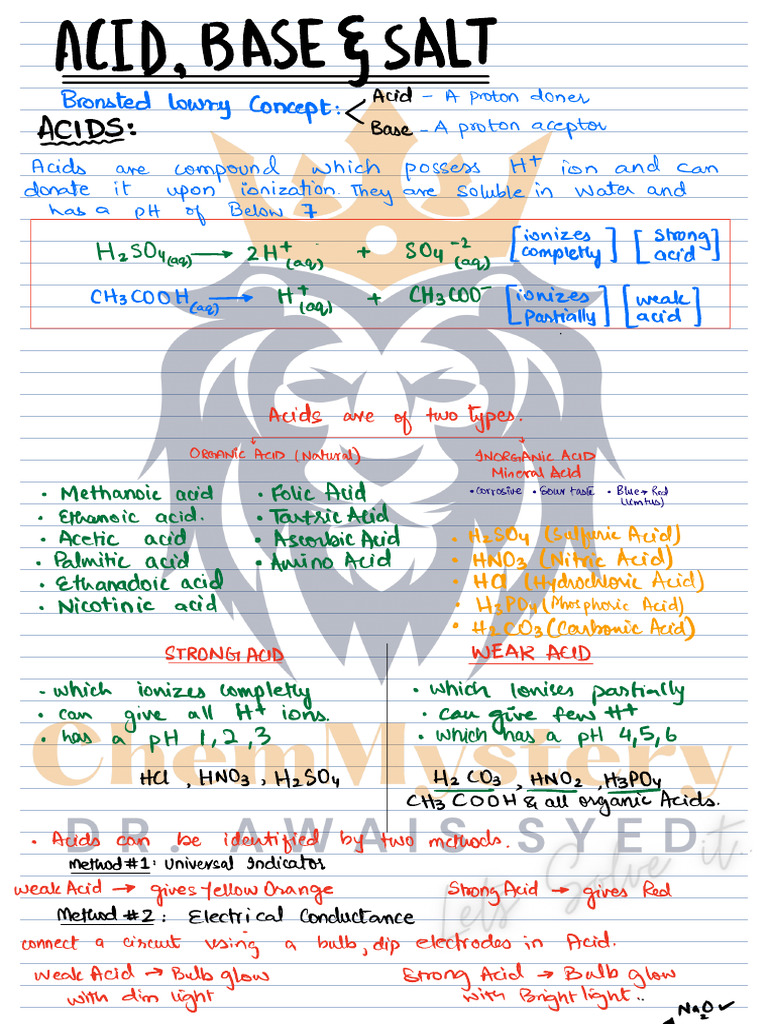 ACID, BASE & SALT
Bronsted Lowry Concept:
Acid - A proton doner
Base - A proton aceptor
ACIDS:
Acids are compound which possess H+ ion and can
donate it upon ionization. They are soluble in water and
has a pH of Below 7
H2SO4(aq) → 2H+(aq) + SO4-2(aq) [ionizes completly] [strong acid]
CH3COOH(aq) → H+(aq) + CH3COO- [ionizes Partially] [weak acid]
Acids are of two types.
ORGANIC ACID (Natural)
INORGANIC ACID
Mineral Acid
• Corrosive • Sour taste • Blue → Red
(Limtus)
• Methanoic acid
• Ethanoic acid.
• Acetic acid
• Palmitic acid
• Ethanadoic acid
• Nicotinic acid
• Folic Acid
• Tartric Acid
• Ascorbic Acid
• Amino Acid
• H2SO4 (Sulfuric Acid)
• HNO3 (Nitric Acid)
• HCl (Hydrochloric Acid)
• H3PO4 (Phosphoric Acid)
• H2CO3 (Carbonic Acid)
STRONG ACID
- which ionizes completly
• can give all H+ ions.
• has a pH 1,2,3
HCl, HNO3, H2SO4
WEAK ACID
• which Ionices partially
• can give few H+
• which has a pH 4,5,6
H2CO3, HNO2, H3PO4
CH3COOH & all organic Acids.
ChemMystery
• Acids can be identified by two methods.
DR. AWAIS SYED
Let's Solve it
Method #1: Universal Indicator
weak Acid → gives Yellow Orange
Strong Acid → gives Red
Method #2: Electrical Conductance
connect a circuit using a bulb, dip electrodes in Acid.
weak Acid → Bulb glow
with dim light
Strong Acid → Bulb glow
with Bright light..
Na2O ✓